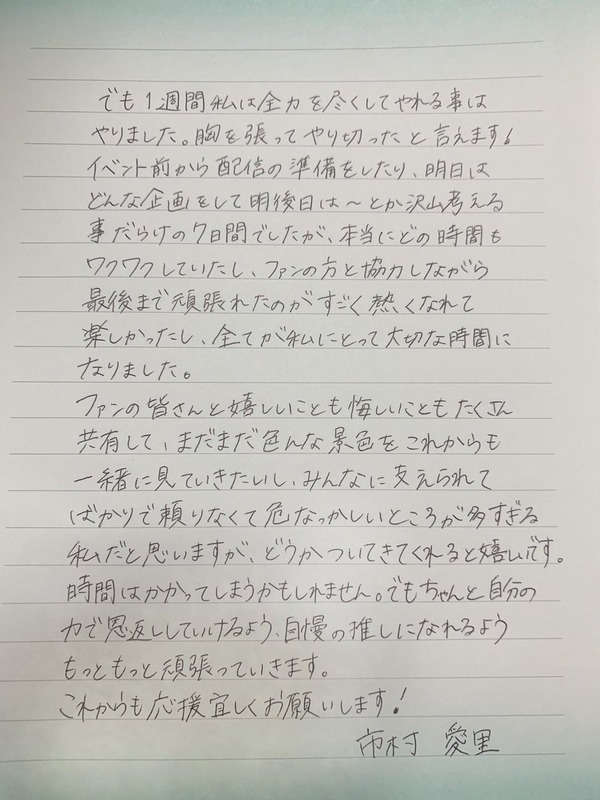 でも1週間私は全力を尽くしてやれる事は
やりました。胸を張ってやり切ったと言えます!
イベント前から配信の準備をしたり、明日は
どんな企画をして明後日は〜とか沢山考える
事だらけの7日間でしたが、本当にどの時間も
ワクワクしていたし、ファンの方と協力しながら
最後まで頑張れたのがすごく熱くなれて
楽しかったし、全てが私にとって大切な時間に
なりました。
ファンの皆さんと嬉しいことも悔しいこともたくさん
共有して、まだまだ色んな景色をこれからも
一緒に見ていきたいし、みんなに支えられて
ばかりで頼りなくて危なっかしいところが多すぎる
私だと思いますが、どうかついてきてくれると嬉しいです。
時間はかかってしまうかもしれません。でもちゃんと自分の
力で恩返ししていけるよう、自慢の推しになれるよう
もっともっと頑張っていきます。
これからも応援宜しくお願いします!
市村 愛里